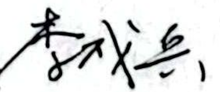 李成兵